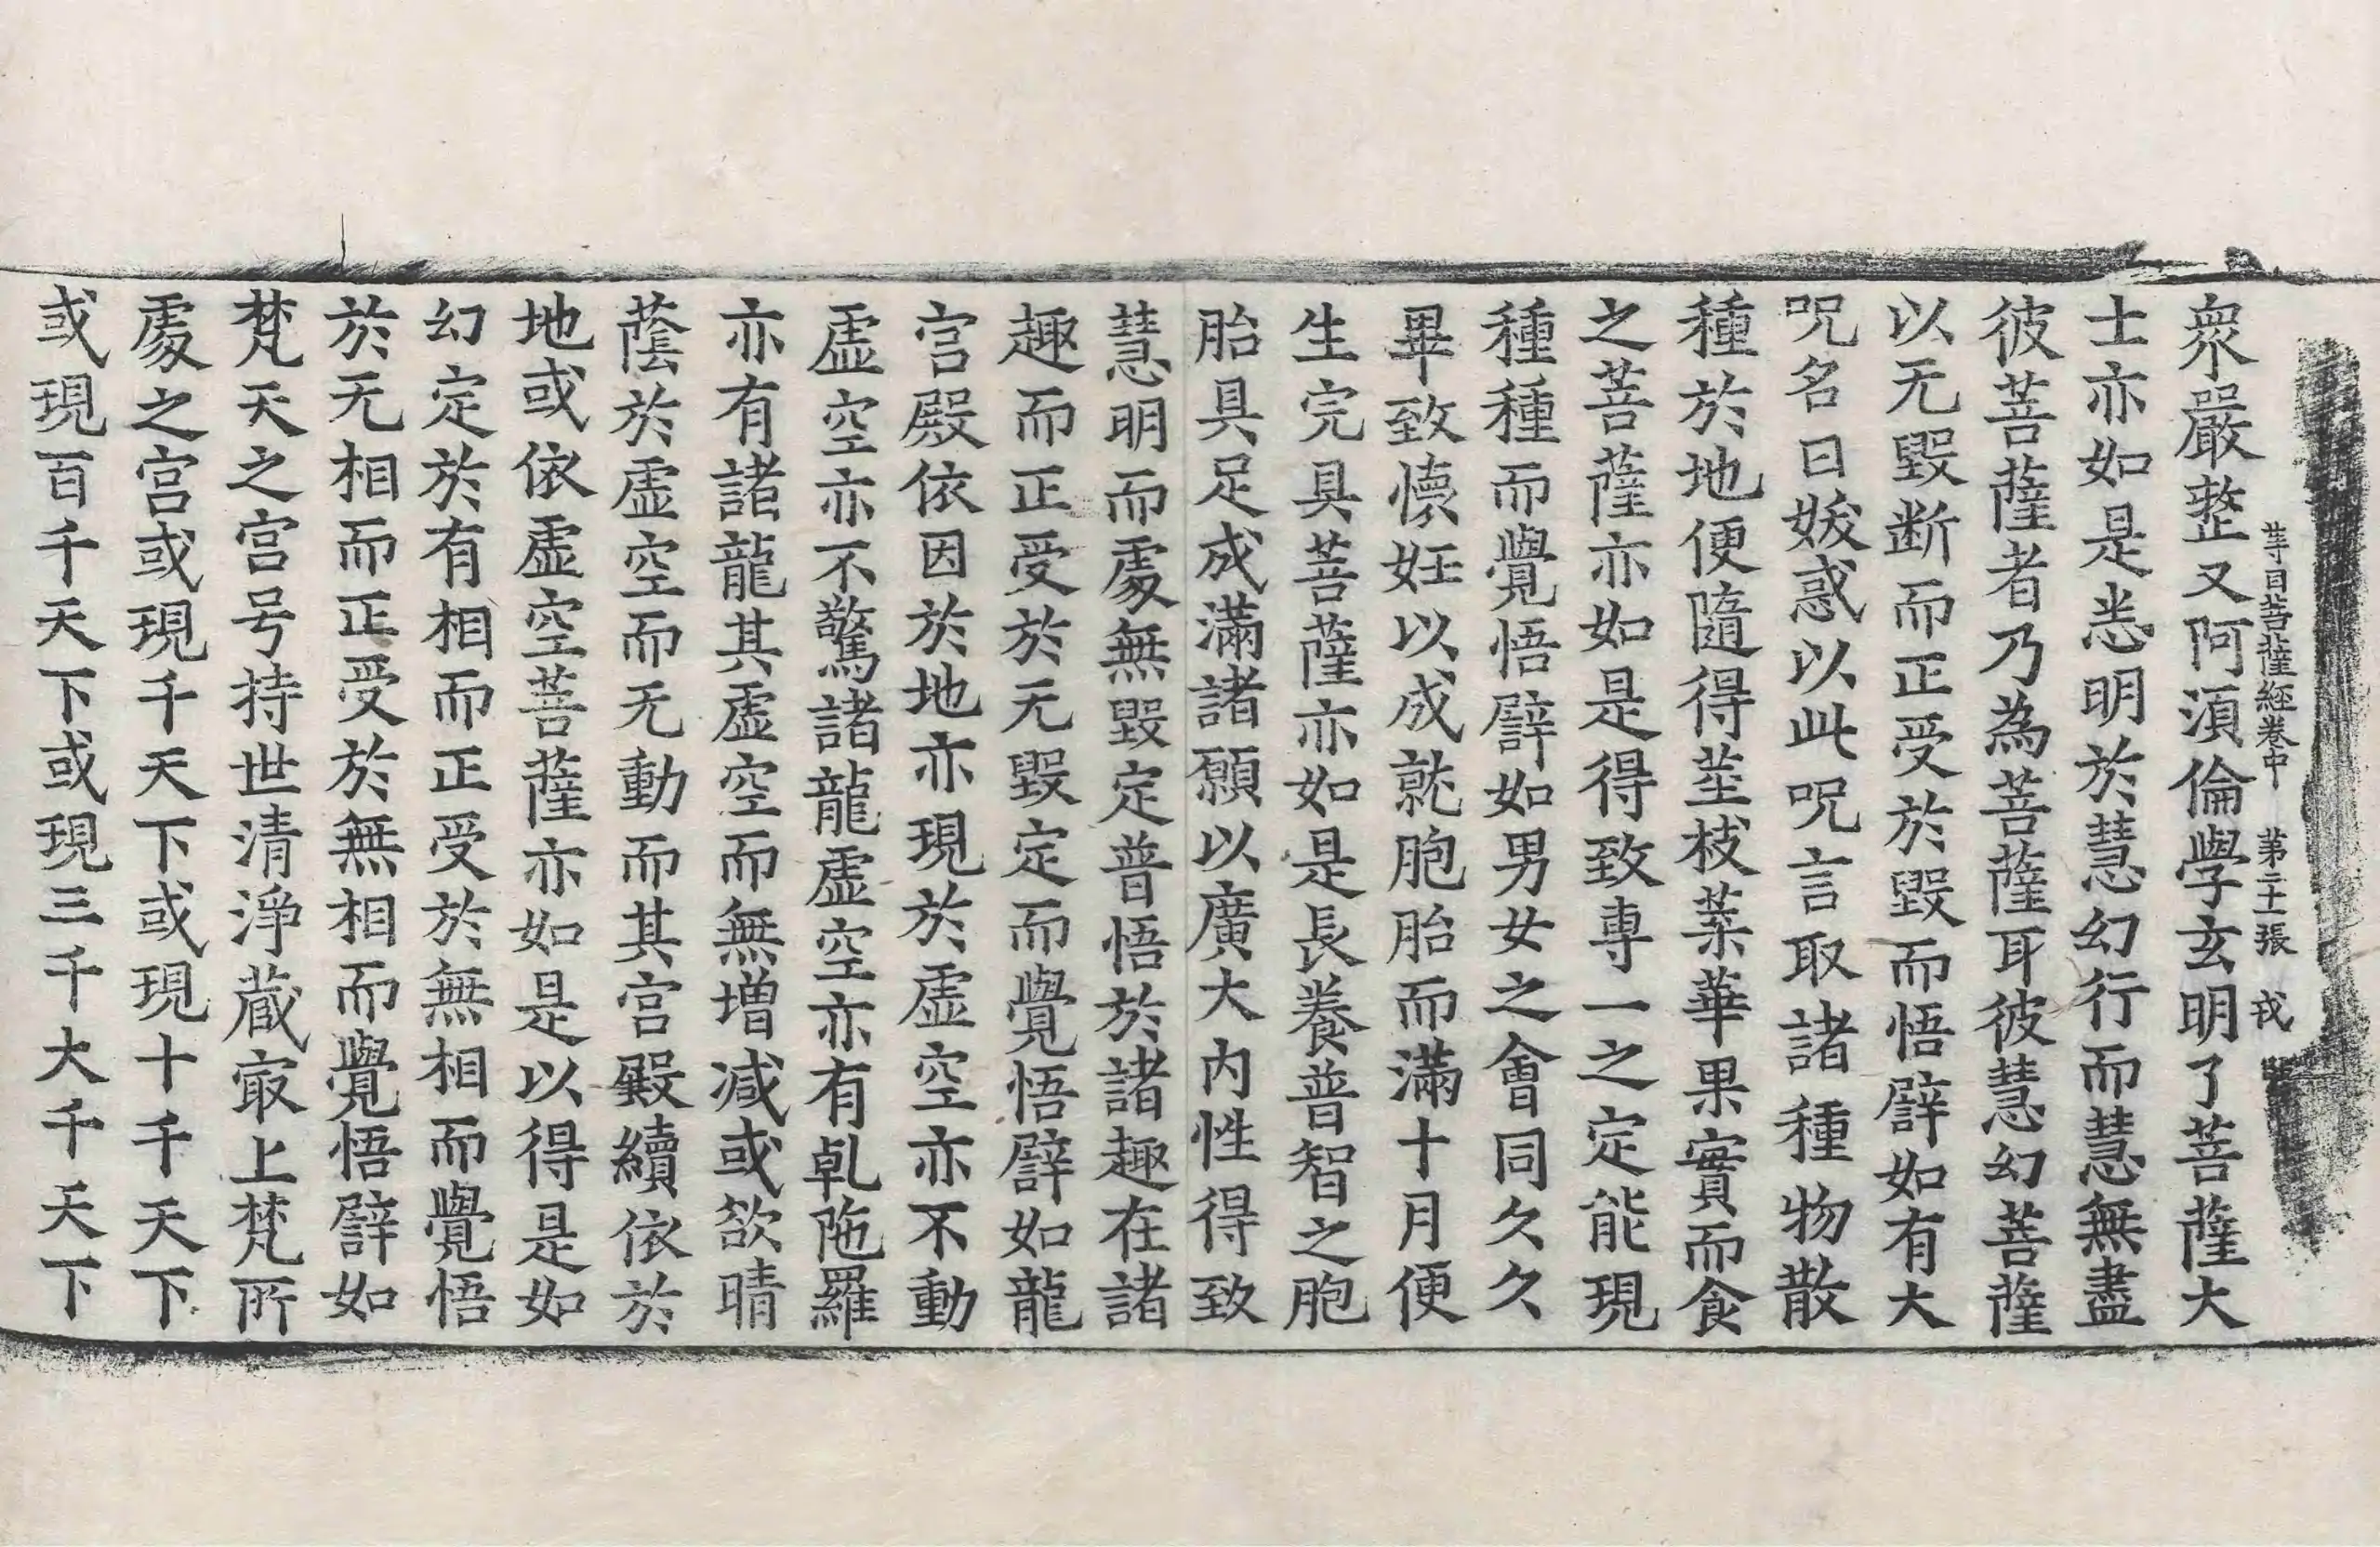 等目菩薩經卷中　第二十一張　戎
衆嚴整又阿湏倫學玄明了菩薩大
士亦如是恙明於慧幻行而慧無盡
彼菩薩者乃為菩薩耳彼慧幻菩薩
以无毀断而正受於毀而悟譬如有大
呪名曰妭惑以此呪言取諸種物散
種於地便隨得莖枝葉華果實而食
之菩薩亦如是得致專一之定能現
種種而覺悟譬如男女之會同久久
畢致懷妊以成就胞胎而滿十月便
生完具菩薩亦如是長養普智之胞
胎具足成滿諸願以廣大内性得致
慧明而處無毀定普悟於諸趣在諸
趣而正受於无毀定而覺悟譬如龍
宫殿依因於地亦現於虛空亦不動
虛空亦不驚諸龍虛空亦有乹陁羅
亦有諸龍其虛空而無增減或欲晴
蔭於虛空而无動而其宫殿續依於
地或依虛空菩薩亦如是以得是如
幻定於有相而正受於無相而覺悟
於无相而正受於無相而覺悟譬如
梵天之宫号持世清淨蔵㝡上梵所
處之宫或現千天下或現十千天下
或現百千天下或現三千大千天下